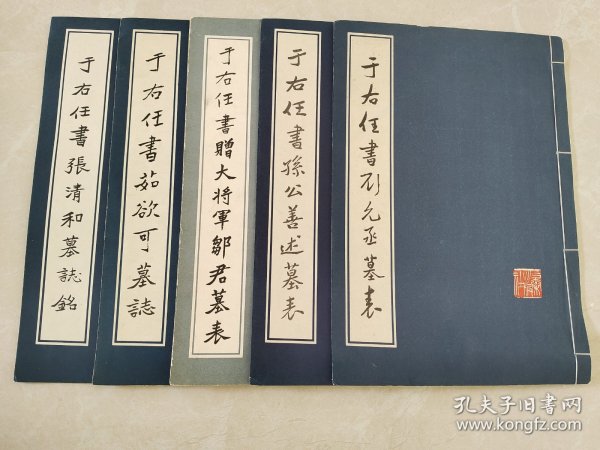 于右任書張清和墓誌銘
于右任書茹欲可墓誌
于右任書贈大将軍鄒君墓表
于右任書孫公善述墓表
于右任書彭允丞墓表
孔夫子旧書网
www.kongfz.com